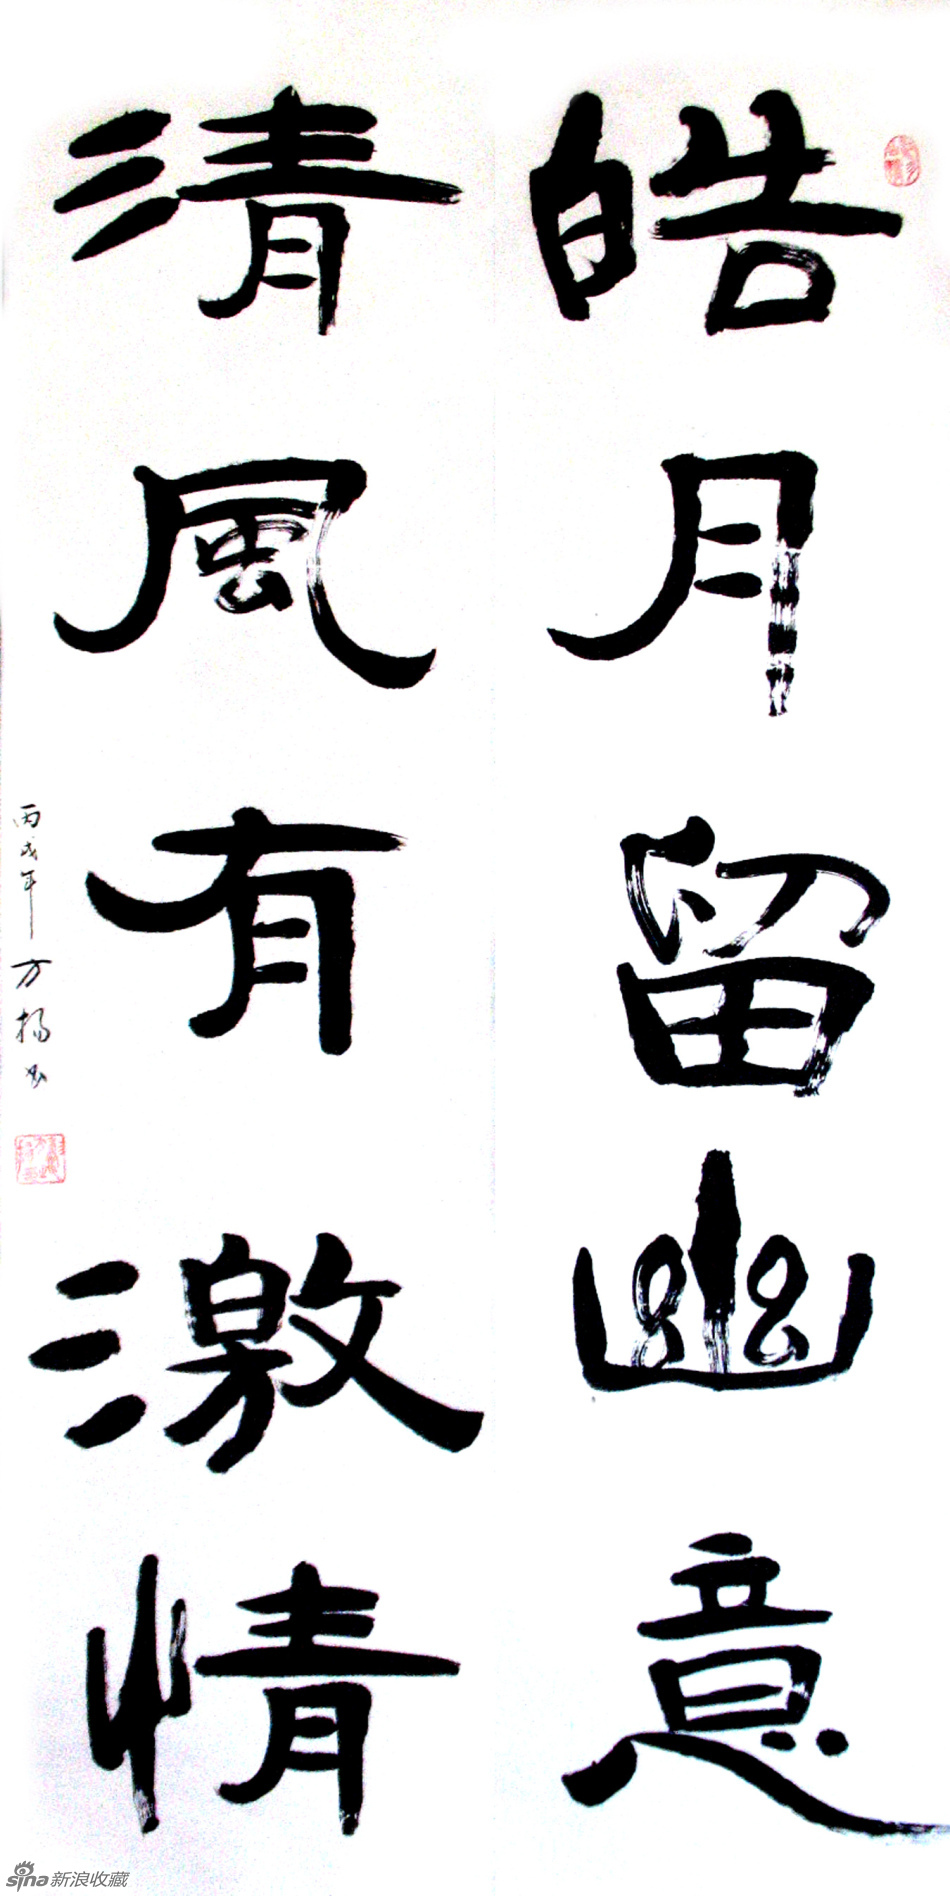 皓月留幽意
清風有激情
丙戌年方揚書
sina新浪收藏